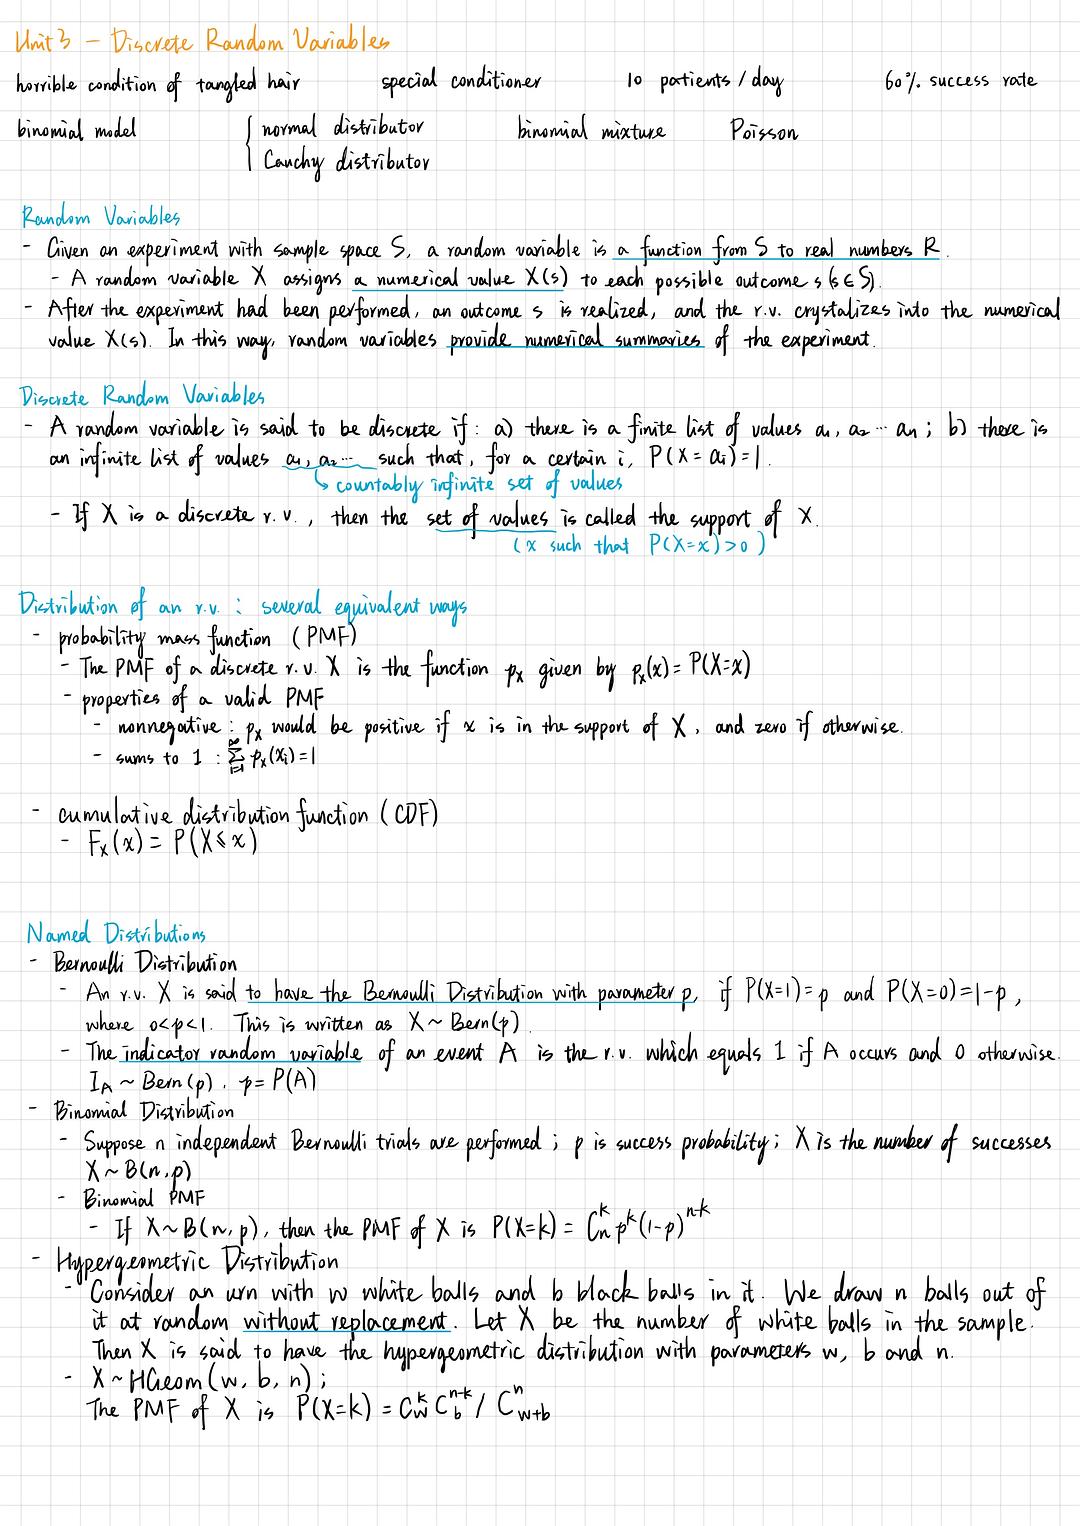 Unit 3 - Discrete Random Variables
horrible condition of tangled hair special conditioner 10 patients / day 60% success rate
binomial model { normal distributor binomial mixture Poisson
Cauchy distributor
Random Variables
- Given an experiment with sample space S, a random variable is a function from S to real numbers R.
- A random variable X assigns a numerical value X(s) to each possible outcome s (s∈S).
- After the experiment had been performed, an outcome s is realized, and the r.v. crystalizes into the numerical
value X(s). In this way, random variables provide numerical summaries of the experiment.
Discrete Random Variables
- A random variable is said to be discrete if: a) there is a finite list of values a₁, a₂ ... aₙ; b) there is
an infinite list of values a₁, a₂... such that, for a certain i, P(X = aᵢ)=1.
↳ countably infinite set of values
- If X is a discrete r.v., then the set of values is called the support of X.
(x such that P(X=x)>0)
Distribution of an r.v. : several equivalent ways
- probability mass function (PMF)
- The PMF of a discrete r.v. X is the function pₓ given by pₓ(x) = P(X=x)
- properties of a valid PMF
- nonnegative : pₓ would be positive if x is in the support of X, and zero if otherwise.
- sums to 1 : ∑_{i=1}^{∞} pₓ(xᵢ)=1
- cumulative distribution function (CDF)
- Fₓ(x) = P(X≤x)
Named Distributions
- Bernoulli Distribution
- An r.v. X is said to have the Bernoulli Distribution with parameter p, if P(X=1)=p and P(X=0)=1-p,
where 0<p<1. This is written as X ~ Bern(p).
- The indicator random variable of an event A is the r.v. which equals 1 if A occurs and 0 otherwise.
I_A ~ Bern(p), p= P(A)
- Binomial Distribution
- Suppose n independent Bernoulli trials are performed; p is success probability; X is the number of successes
X ~ B(n,p)
- Binomial PMF
- If X~B(n,p), then the PMF of X is P(X=k) = C_n^k p^k (1-p)^{n-k}
- Hypergeometric Distribution
- Consider an urn with w white balls and b black balls in it. We draw n balls out of
it at random without replacement. Let X be the number of white balls in the sample.
Then X is said to have the hypergeometric distribution with parameters w, b and n.
- X ~ HGeom(w, b, n);
The PMF of X is P(X=k) = C_w^k C_b^{n-k} / C_{w+b}^n